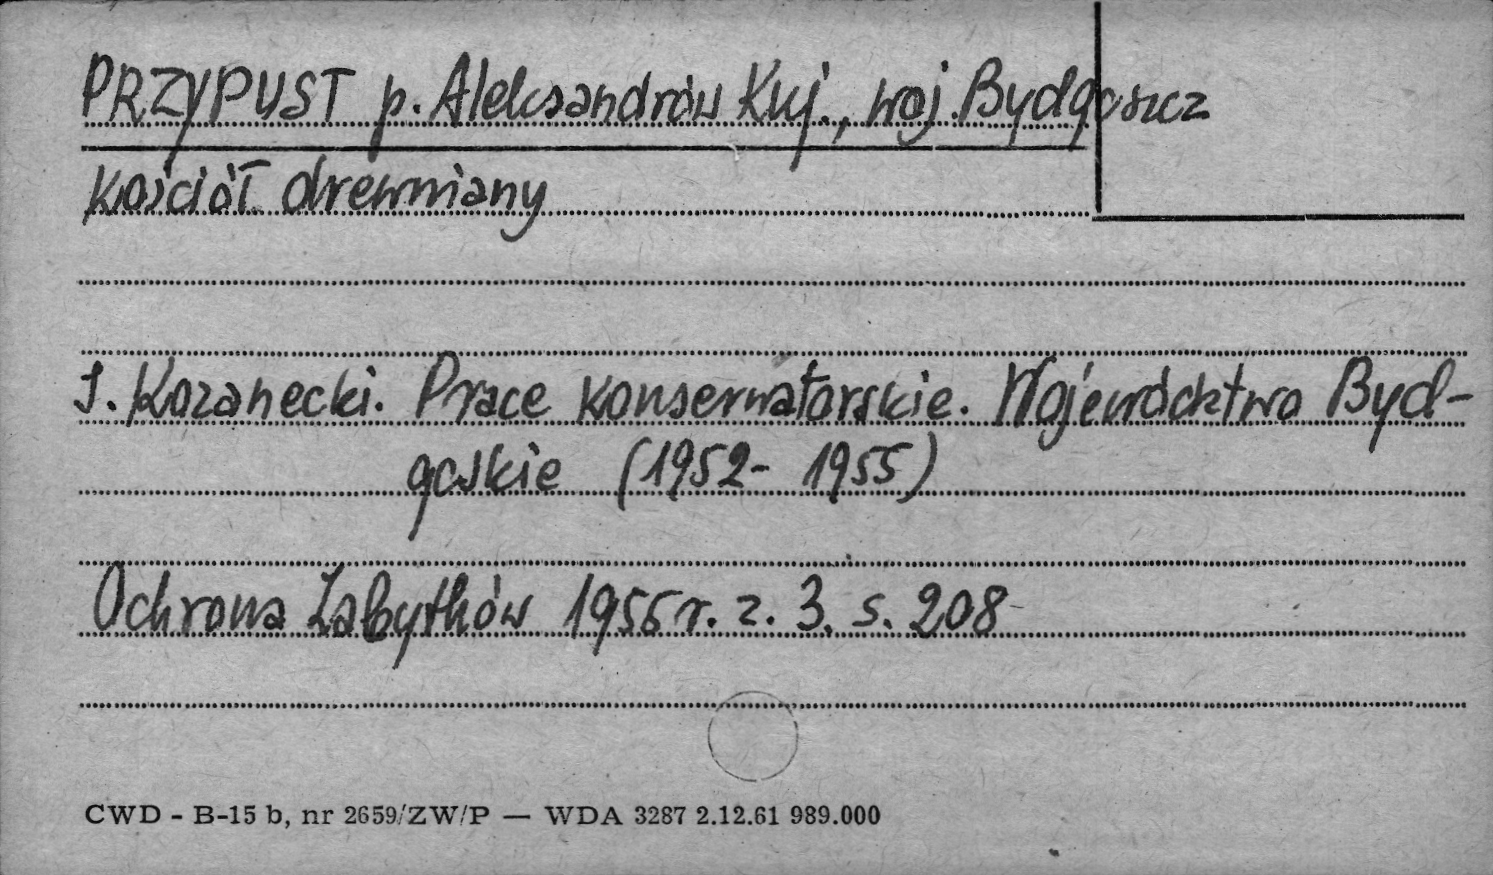 PRZYPUST p. Aleksandrów Kuj., woj. Bydgoszcz
kościół drewniany
J. Kozanecki. Prace konserwatorskie. Województwo Byd-
goskie (1952-1955)
Ochrona Zabytków 1956 r. z. 3. s. 208
CWD - B-15 b, nr 2659/ZW/P — WDA 3287 2.12.61 989.000